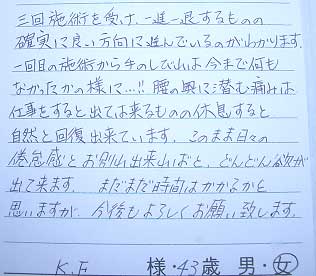 三回施術を受け、一進一退するものの
確実に良い方向に進んでいるのがわかります。
一回目の施術から手のしびれは今まで何も
なかったかの様に…!! 腰の奥に潜む痛みは
仕事をすると出ては来るものの休息すると
自然と回復出来ています。このまま日々の
倦怠感とお別れ出来ればと、どんどん欲が
出て来ます。まだまだ時間はかかるかと
思いますが、今後もよろしくお願い致します。
K.F 様・43歳 男・女